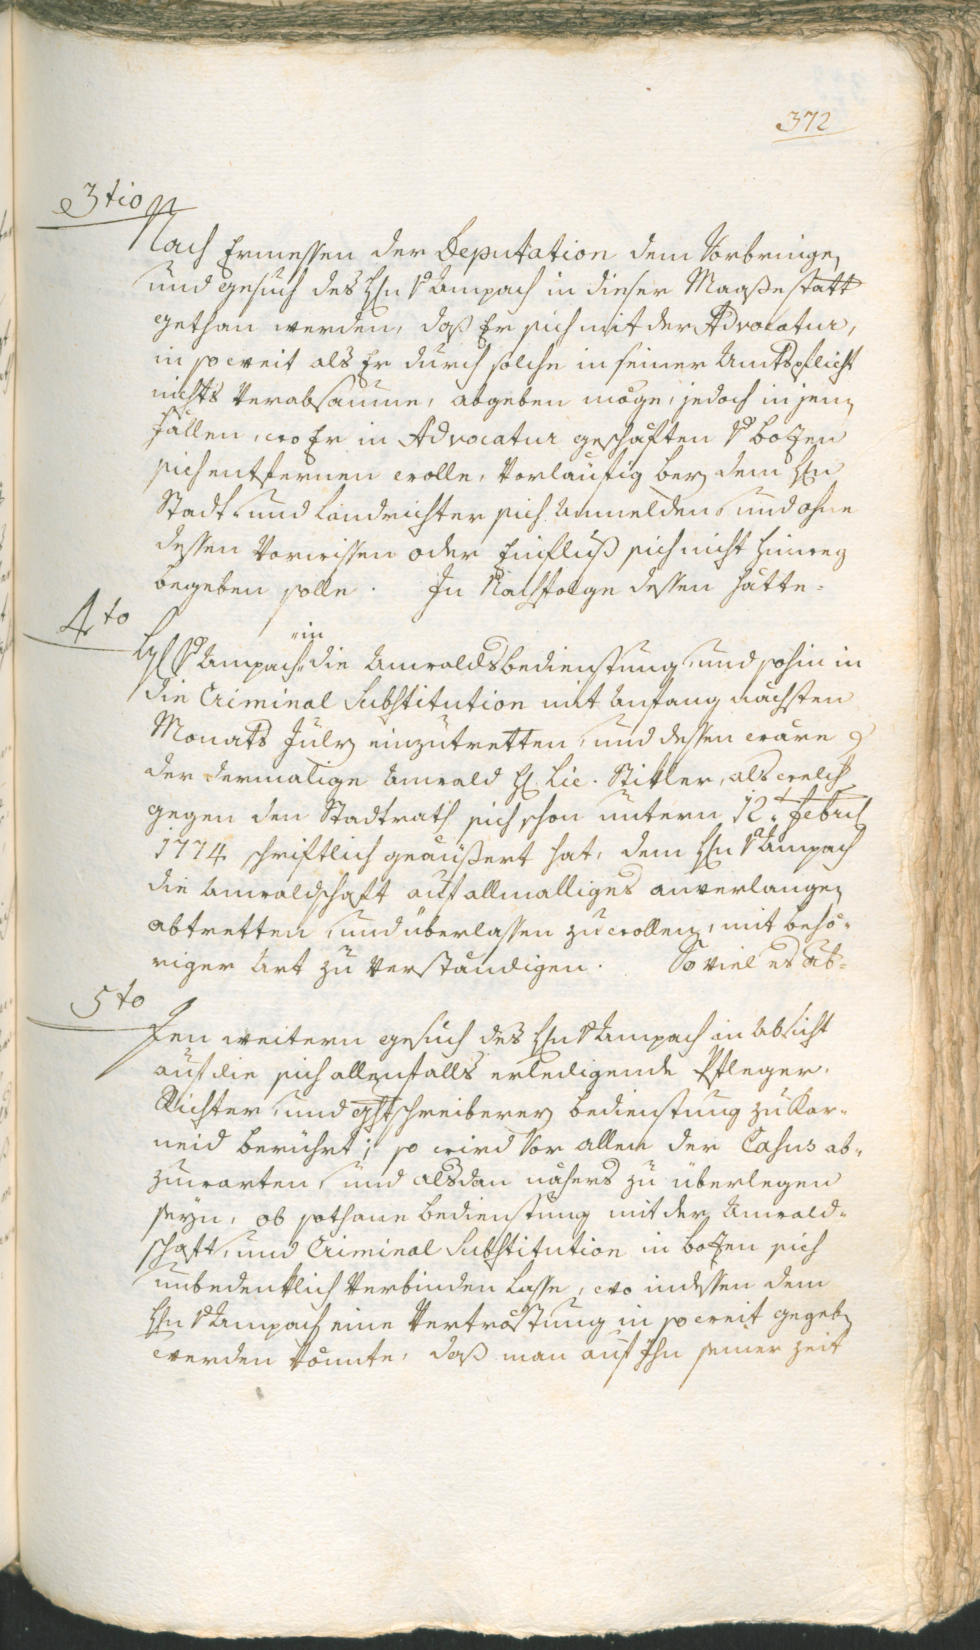 372
3tio
Nach Ermessen der Deputation dem Vorbringen
und Gesuch des Hrn v Ampach in dieser Maaße statt
gethan werden, daß Er sich mit der Advocatur,
in soweit als Er durch solche in seiner Amtspflicht
nichts verabsaume, abgeben möge, jedoch in jenen
fällen, wo Er in Advocatur geschäften v Botzen
sich entfernen wolle, vorläufig bey dem Hrn
Stadt- und Landrichter sich anmelden, und ohne
dessen Vorwissen oder Einfluß sich nicht hinweg
begeben solle. In Nachfolge dessen hätte
4to
H v Ampach in die Anwaldsbedienstung, und sohin in
die Criminal Substitution mit Anfang nächsten
Monats July einzutretten, und dessen wäre
der dermalige Anwald H. Lic. Stikler, als welch
gegen den Stadtrath sich schon untern 12t Febru
1774 schriftlich geäüßert hat, dem Hrn v Ampach
die Anwaldschaft auf allmalliges anverlangen
abtretten, und überlassen zu wollen, mit behö-
riger Art zu verständigen. So viel es ab-
5to
den weitern gesuch des Hrn v Ampach in Absicht
auf die sich allenfalls erledigende Pfleger-
Richter- und gstschreiberey bedienstung zu Kar-
neid berührt; so wird vor allem der Casus ab-
zuwarten, und alsdan nähers zu überlegen
seyn, ob sothane bedienstung mit der Anwald-
schaft, und Criminal Substitution in botzen sich
unbedenklich verbinden lasse, wo indessen dem
Hrn v Ampach eine Vertröstung in soweit gegeben
werden könnte, daß man auf Ihn seiner Zeit